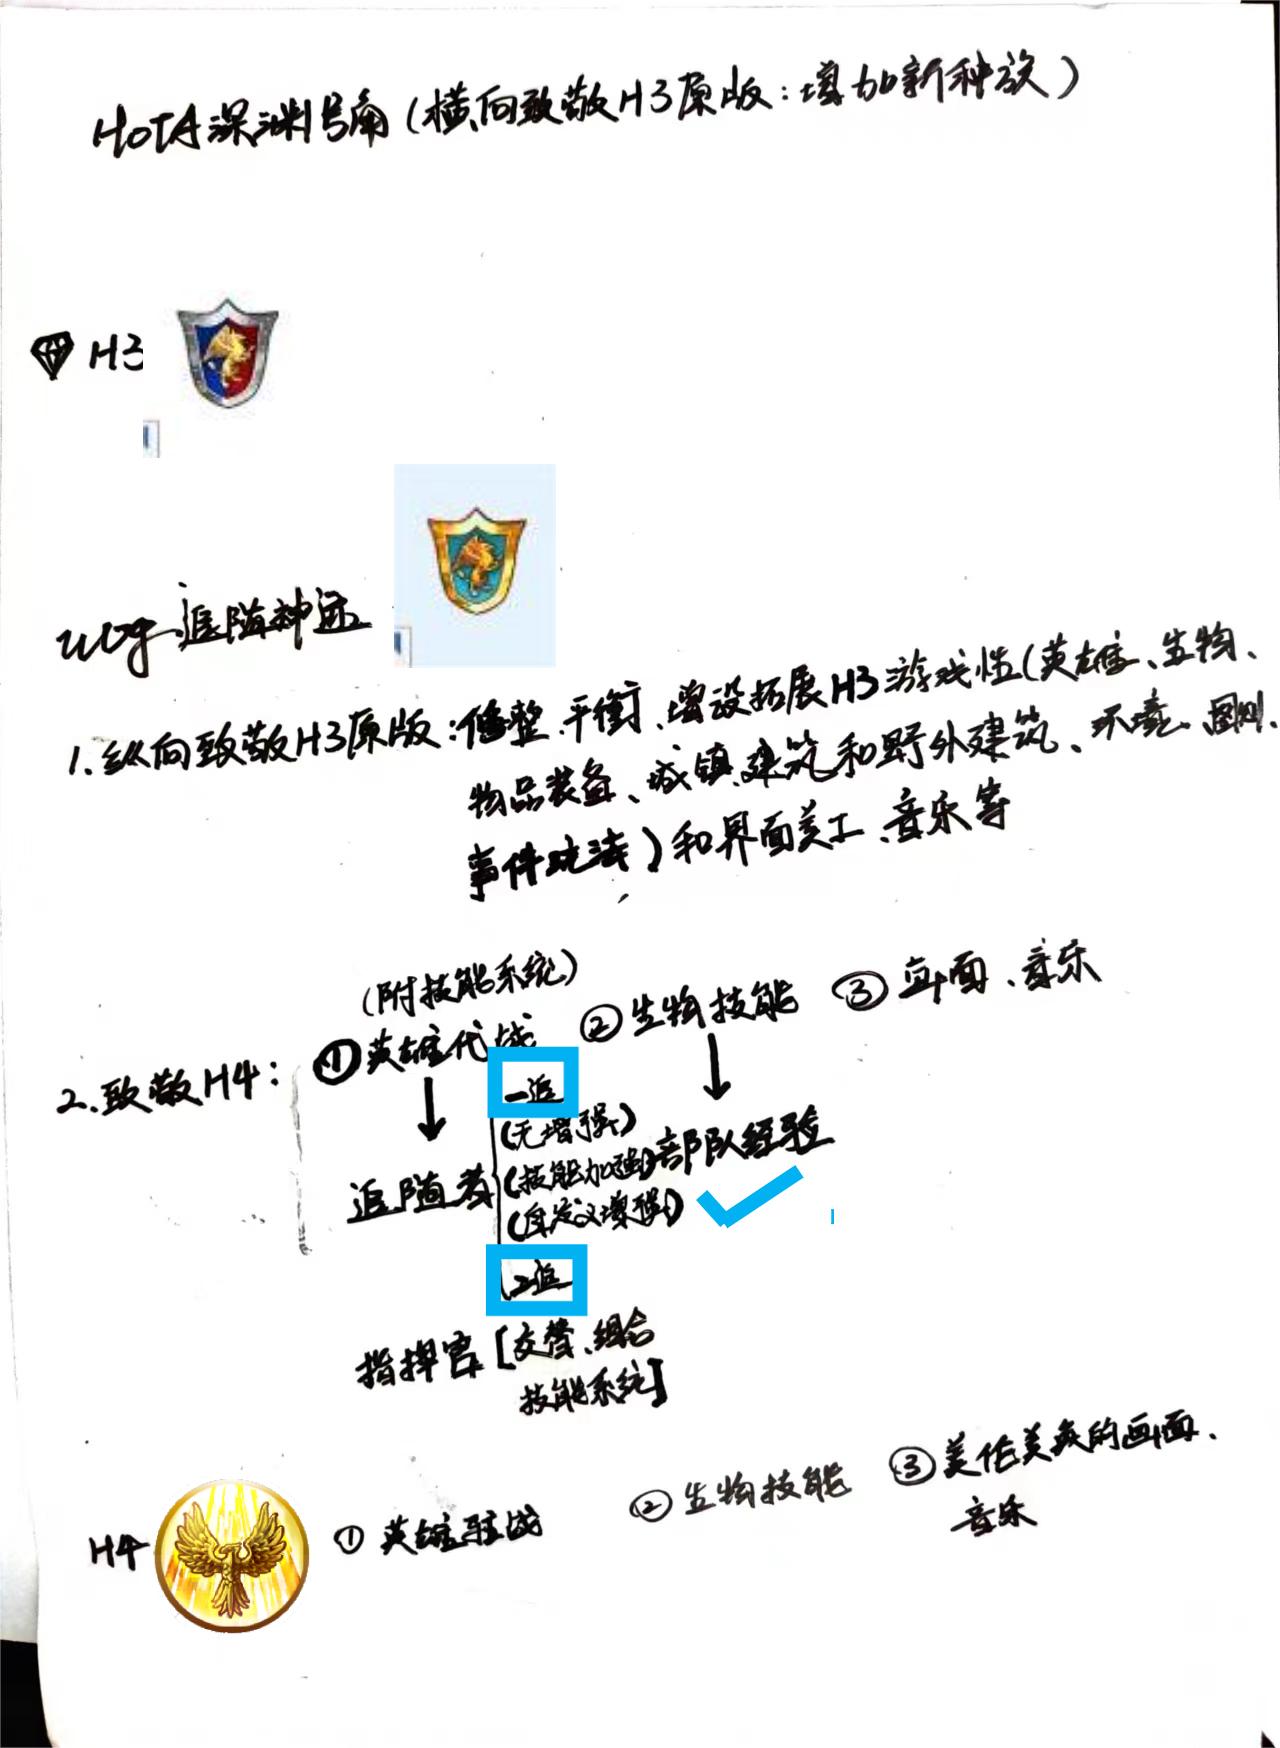 HotA深渊号角（横向致敬H3原版：增加新种族）
H3
wog 追随神迹
1.纵向致敬H3原版：修整、平衡、增设拓展H3游戏性（英雄、生物、
物品装备、城镇建筑和野外建筑、环境、规则、
事件玩法）和界面美工、音乐等
（附技能系统）
2.致敬H4：①英雄代战 ②生物技能 ③画面、音乐
一追
（无增强）
追随者（技能加强）部队经验
（自定义增强）
二追
指挥官［交替、组合
技能系统］
H4 ①英雄驻战 ②生物技能 ③美伦美奂的画面、
音乐